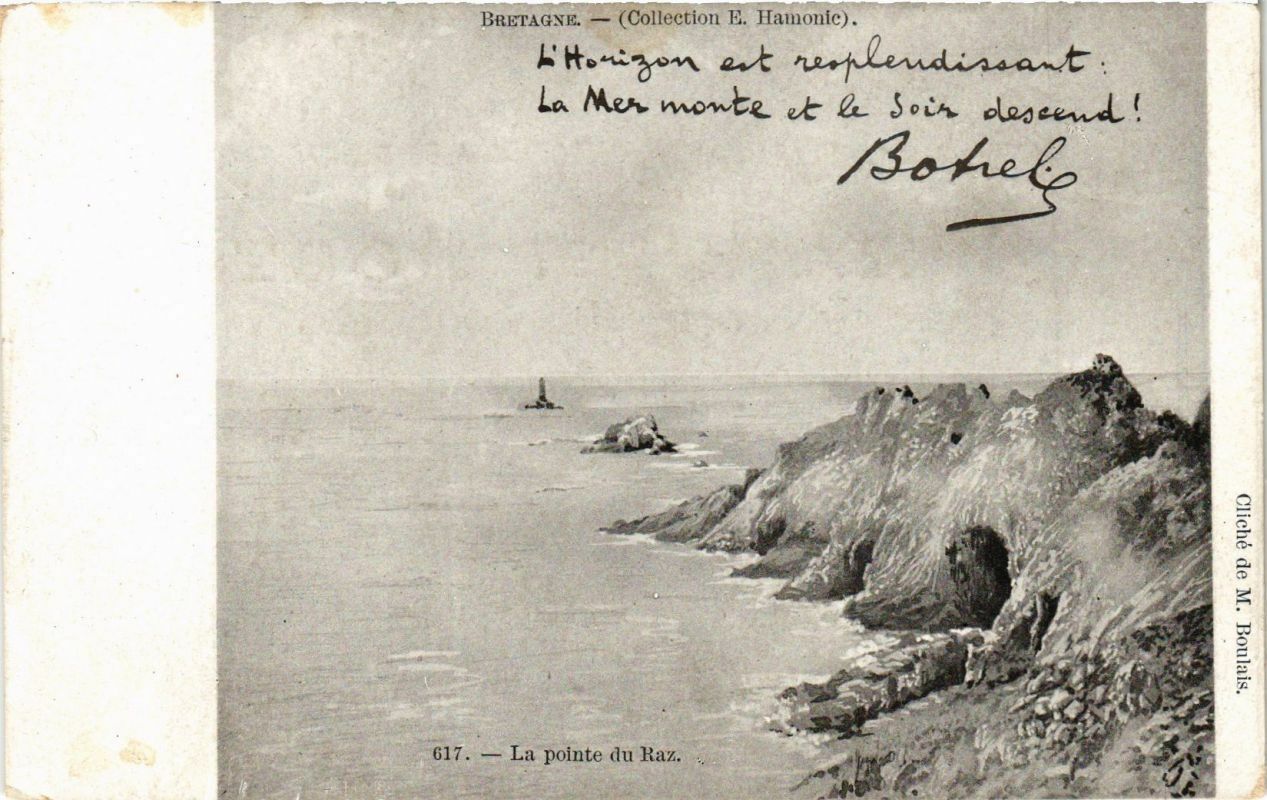 BRETAGNE. — (Collection E. Hamonic).
L'Horizon est resplendissant :
La Mer monte et le Soir descend !
Botrel
Cliché de M. Boulais.
617. — La pointe du Raz.